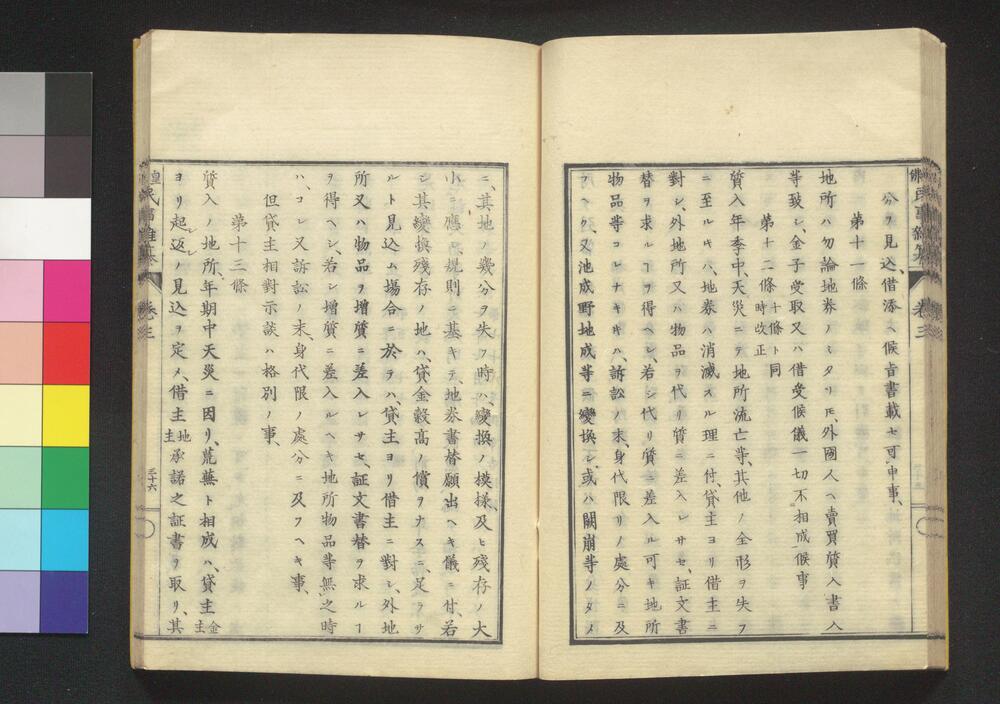 分ヲ見込、借添ヘ候旨書載セ可申事、
第十一條
地所ハ勿論地券ノミタリ𪜈、外國人ヘ賣買質入書入
等致シ、金子受取又ハ借受候儀一切不相成候事
第十二條 十條ト同時改正
質入年季中、天災ニテ地所流亡等、其他ノ全形ヲ失フ
ニ至ルキハ、地券ハ消滅スル理ニ付、貸主ヨリ借主ニ
對シ、外地所又ハ物品ヲ代リ質ニ差入レサセ、証文書
替ヲ求ルヿヲ得ヘシ、若シ代リ質ニ差入ル可キ地所
物品等コレナキキハ、訴訟ノ末、身代限リノ處分ニ及
フヘク又池成野地成等ニ變換シ、或ハ闕崩等ノタメ
ニ、其地ノ幾分ヲ失フ時ハ、變換ノ模樣、及ヒ殘存ノ大
小ニ應シ、規則ニ基キテ地券書替願出ヘキ儀ニ付、若
シ其變換殘存ノ地ハ、貸金穀高ノ償ヲナスニ、足ラサ
ルト見込ム場合ニ於テハ、貸主ヨリ借主ニ對シ、外地
所又ハ物品ヲ増質ニ差入レサセ、証文書替ヲ求ルヿ
ヲ得ヘシ、若シ増質ニ差入ルヘキ地所物品等無之時
ハ、コレ又訴訟ノ末、身代限ノ處分ニ及フヘキ事、
但貸主相對示談ハ格別ノ事、
第十三條
質入ノ地所、年期中天災ニ因リ、荒蕪ト相成ハ、貸主金主
ヨリ起返ノ見込ヲ定メ、借主地主承諾之証書ヲ取リ、其
卷三
三十六